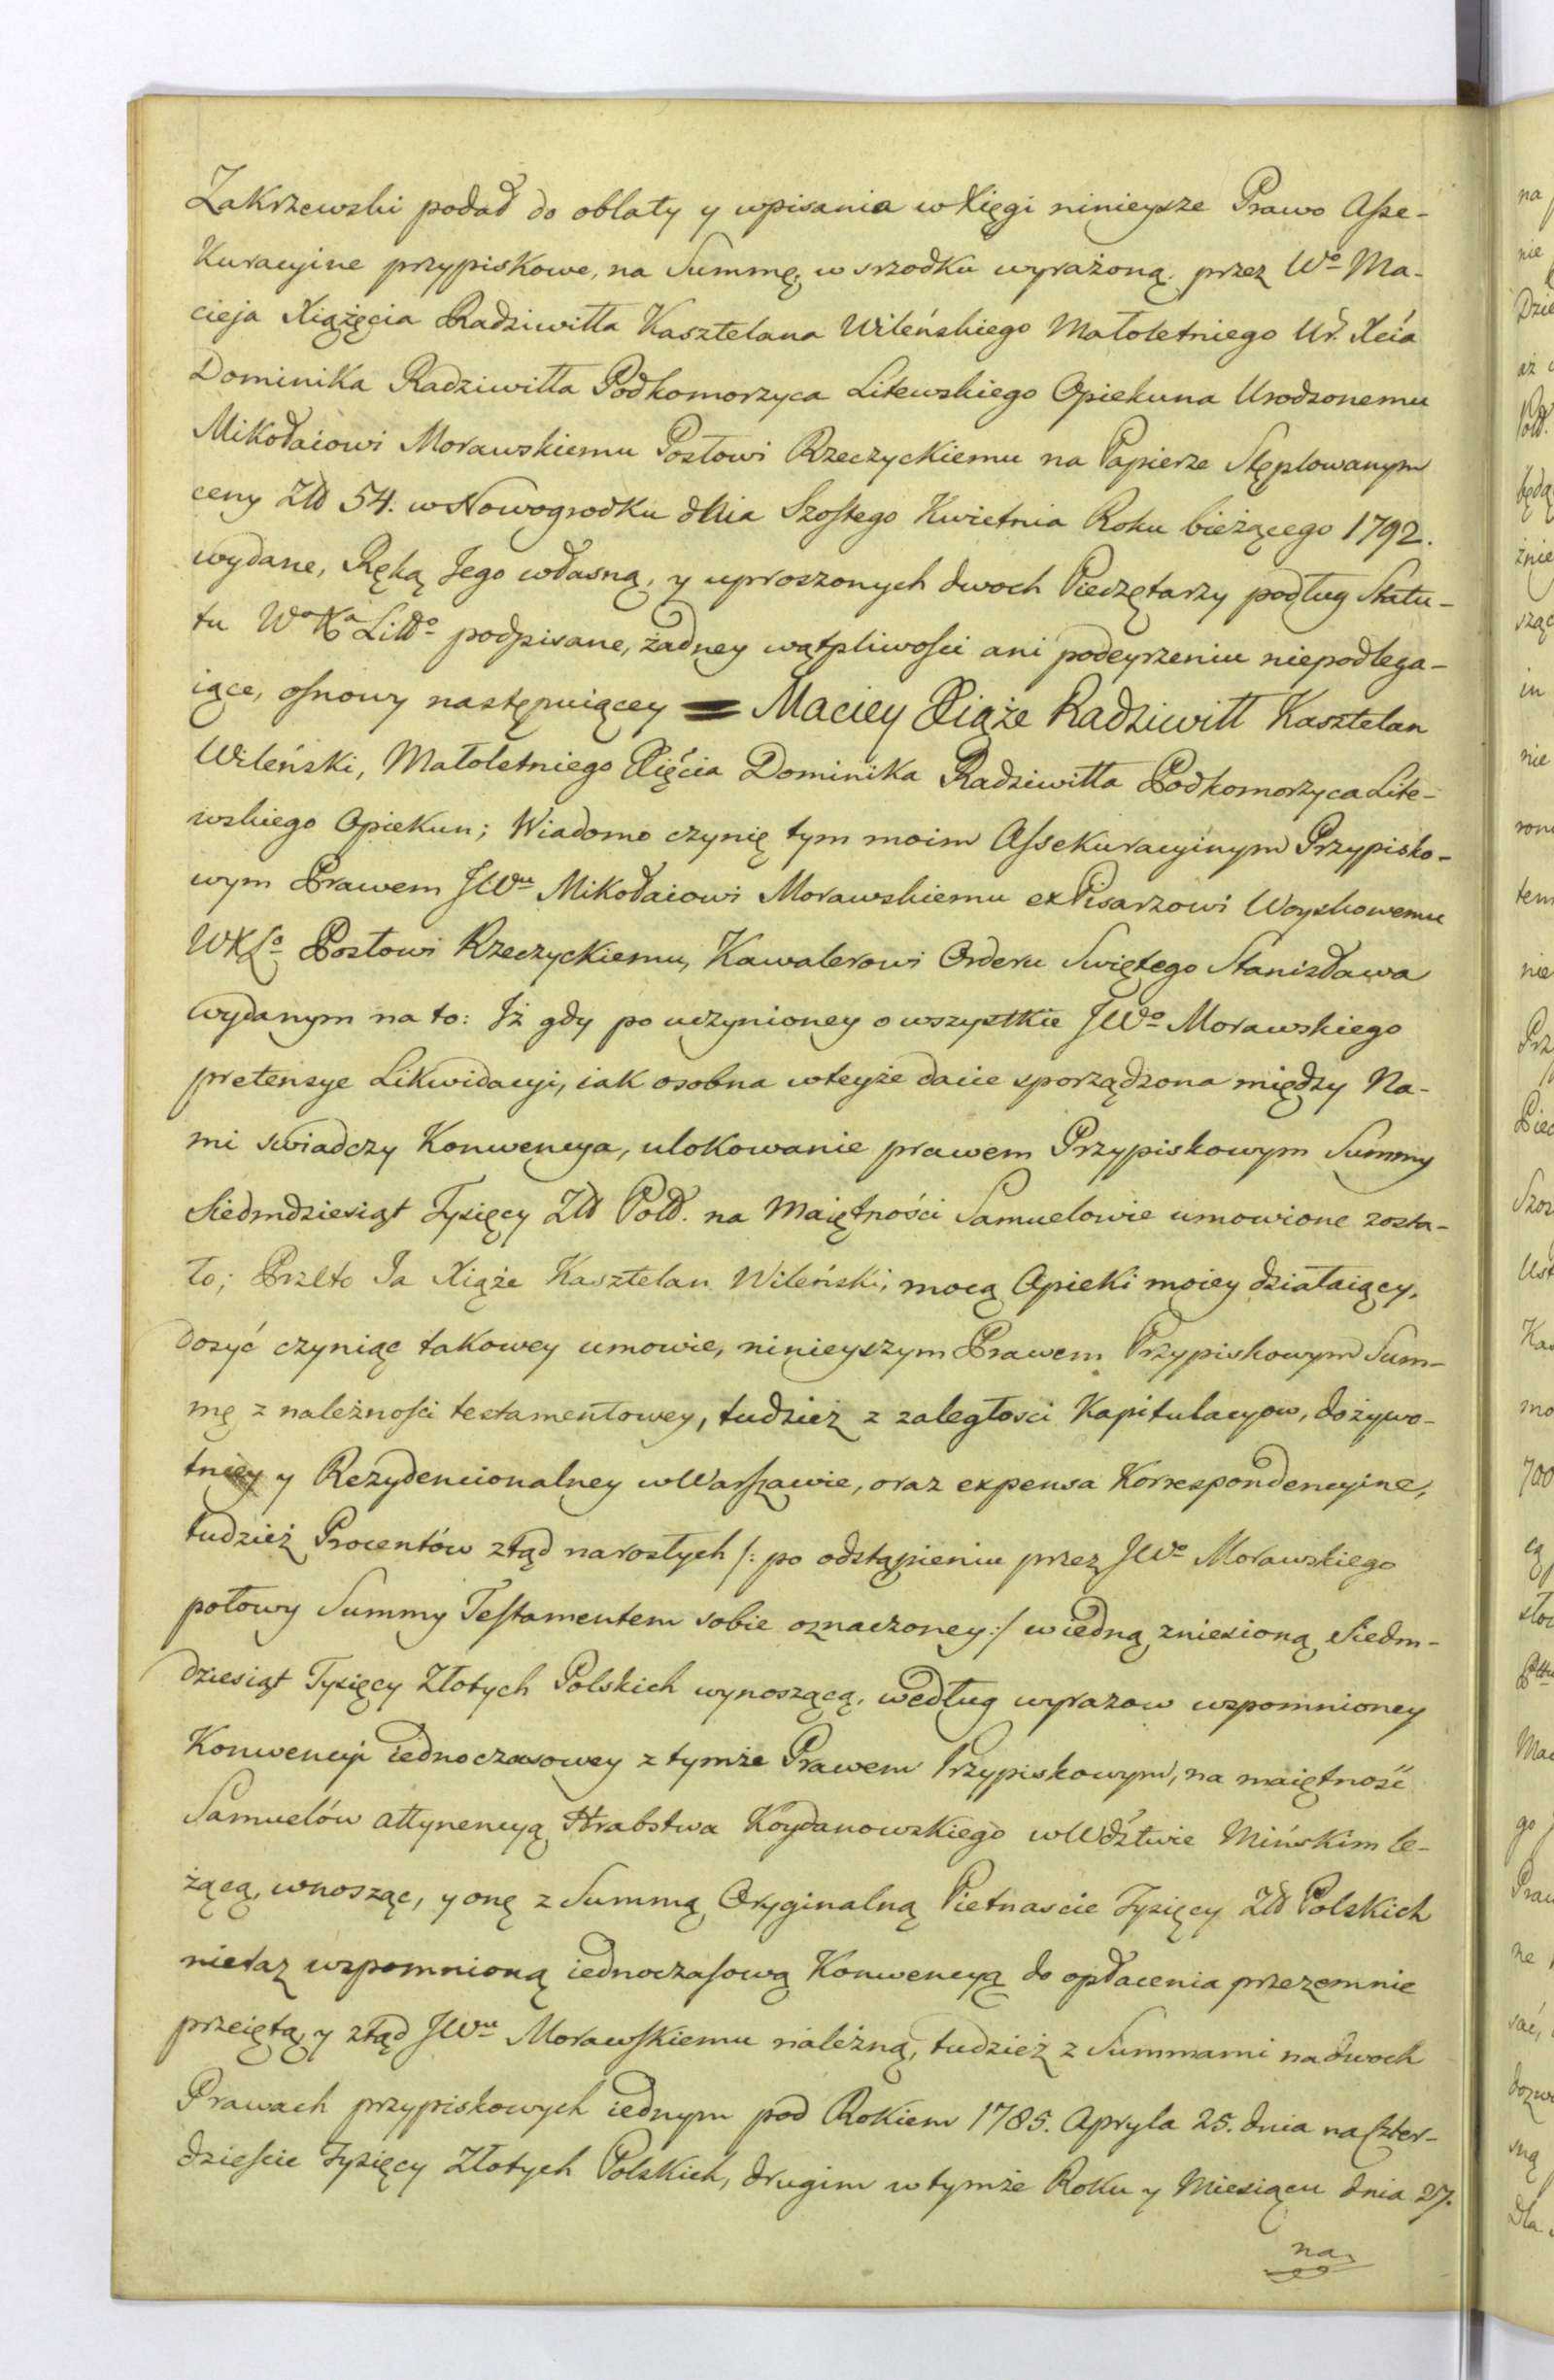 Zakrzewski podał do oblaty y wpisania w Xięgi ninieysze Prawo Asse-
kuracyine przypiskowe, na Summę w srzodku wyrażoną przez Wº Ma-
cieja Xiążęcia Radziwiłła Kasztelana Wileńskiego Małoletniego Ur. Xcia
Dominika Radziwiłła Podkomorzyca Litewskiego Opiekuna Urodzonemu
Mikołaiowi Morawskiemu Posłowi Rzeczyckiemu na Papierze Stęplowanym
ceny Złł 54. w Nowogrodku dnia Szostego Kwietnia Roku bieżącego 1792.
wydane, Ręką Jego własną, y uproszonych dwoch Pieczętarzy podług Statu-
tu Wº Xª Littº podpisane, żadney wątpliwości ani podeyrzeniu niepodlega-
iące, osnowy następuiącey = Maciey Xiąże Radziwiłł Kasztelan
Wileński, Małoletniego Xięcia Dominika Radziwiłła Podkomorzyca Lite-
wskiego Opiekun; Wiadomo czynię tym moim Assekuracyinym Przypisko-
wym Prawem JWu Mikołaiowi Morawskiemu exPisarzowi Woyskowemu
WXLº Posłowi Rzeczyckiemu, Kawalerowi Orderu Swiętego Stanisława
wydanym na to: Iż gdy po uczynioney o wszystkie JWº Morawskiego
pretensye Likwidacyi, iak osobna w teyże dacie sporządzona między Na-
mi swiadczy Konwencya, ulokowanie prawem Przypiskowym Summy
Siedmdziesiąt Tysięcy Złł Poll. na Maiętności Samuelowie umowione zosta-
ło; Przeto Ja Xiąże Kasztelan Wileński, mocą Opieki moiey działaiący,
dosyć czyniąc takowey umowie, ninieyszym Prawem Przypiskowym Sum-
mę z należności testamentowey, tudzież z zaległosci Kapitulacyow, dożywo-
tniey y Rezydencionalney w Warszawie, oraz expensa Korrespondencyine,
tudzież Procentów ztąd narosłych /: po odstąpieniu przez JWº Morawskiego
połowy Summy Testamentem sobie oznaczoney :/ w iedną zniesioną Siedm-
dziesiąt Tysięcy Złotych Polskich wynoszącą, według wyrazow wspomnioney
Konwencyi iednoczasowey z tymże Prawem Przypiskowym, na maiętność
Samuelów attynencyą Hrabstwa Koydanowskiego w Wdztwie Mińskim le-
żącą, wnosząc, y onę z Summą Oryginalną Pietnascie Tysięcy Złł Polskich
nieraz wspomnioną iednoczasową Konwencyą do opłacenia przezemnie
przeiętą, y ztąd JWu Morawskiemu należną, tudzież z Summami na dwoch
Prawach przypiskowych iednym pod Rokiem 1785. Apryla 25. dnia na Czter-
dzieście Tysięcy Złotych Polskich, drugim w tymże Roku y Miesiącu dnia 27.
na